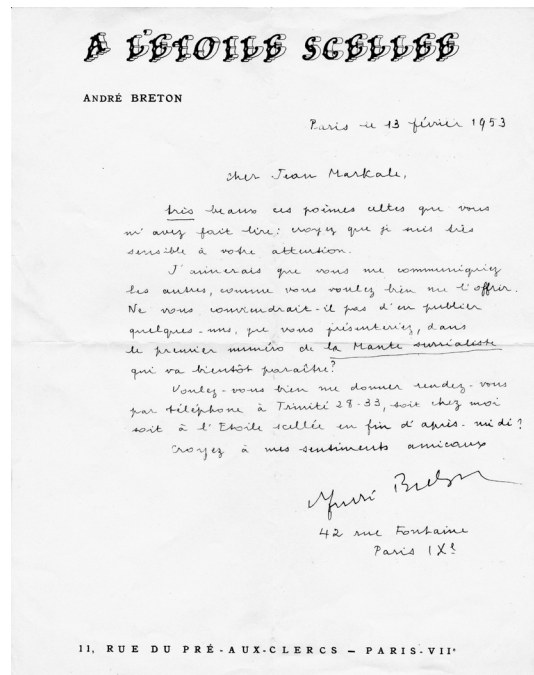 A L'ÉTOILE SCELLÉE
ANDRÉ BRETON
Paris le 13 février 1953
Cher Jean Markale,
très beaux ces poèmes celtes que vous
m'avez fait lire : croyez que je suis très
sensible à votre attention.
J'aimerais que vous me communiquiez
les autres, comme vous voulez bien me l'offrir.
Ne vous conviendrait-il pas d'en publier
quelques-uns, que vous présenteriez, dans
le premier numéro de la Mante surréaliste
qui va bientôt paraître?
Voulez-vous bien me donner rendez-vous
par téléphone à Trinité 28-33, soit chez moi
soit à l'Etoile scellée en fin d'après-midi?
Croyez à mes sentiments amicaux
André Breton
42 rue Fontaine
Paris IXe
11, RUE DU PRÉ-AUX-CLERCS – PARIS-VIIe